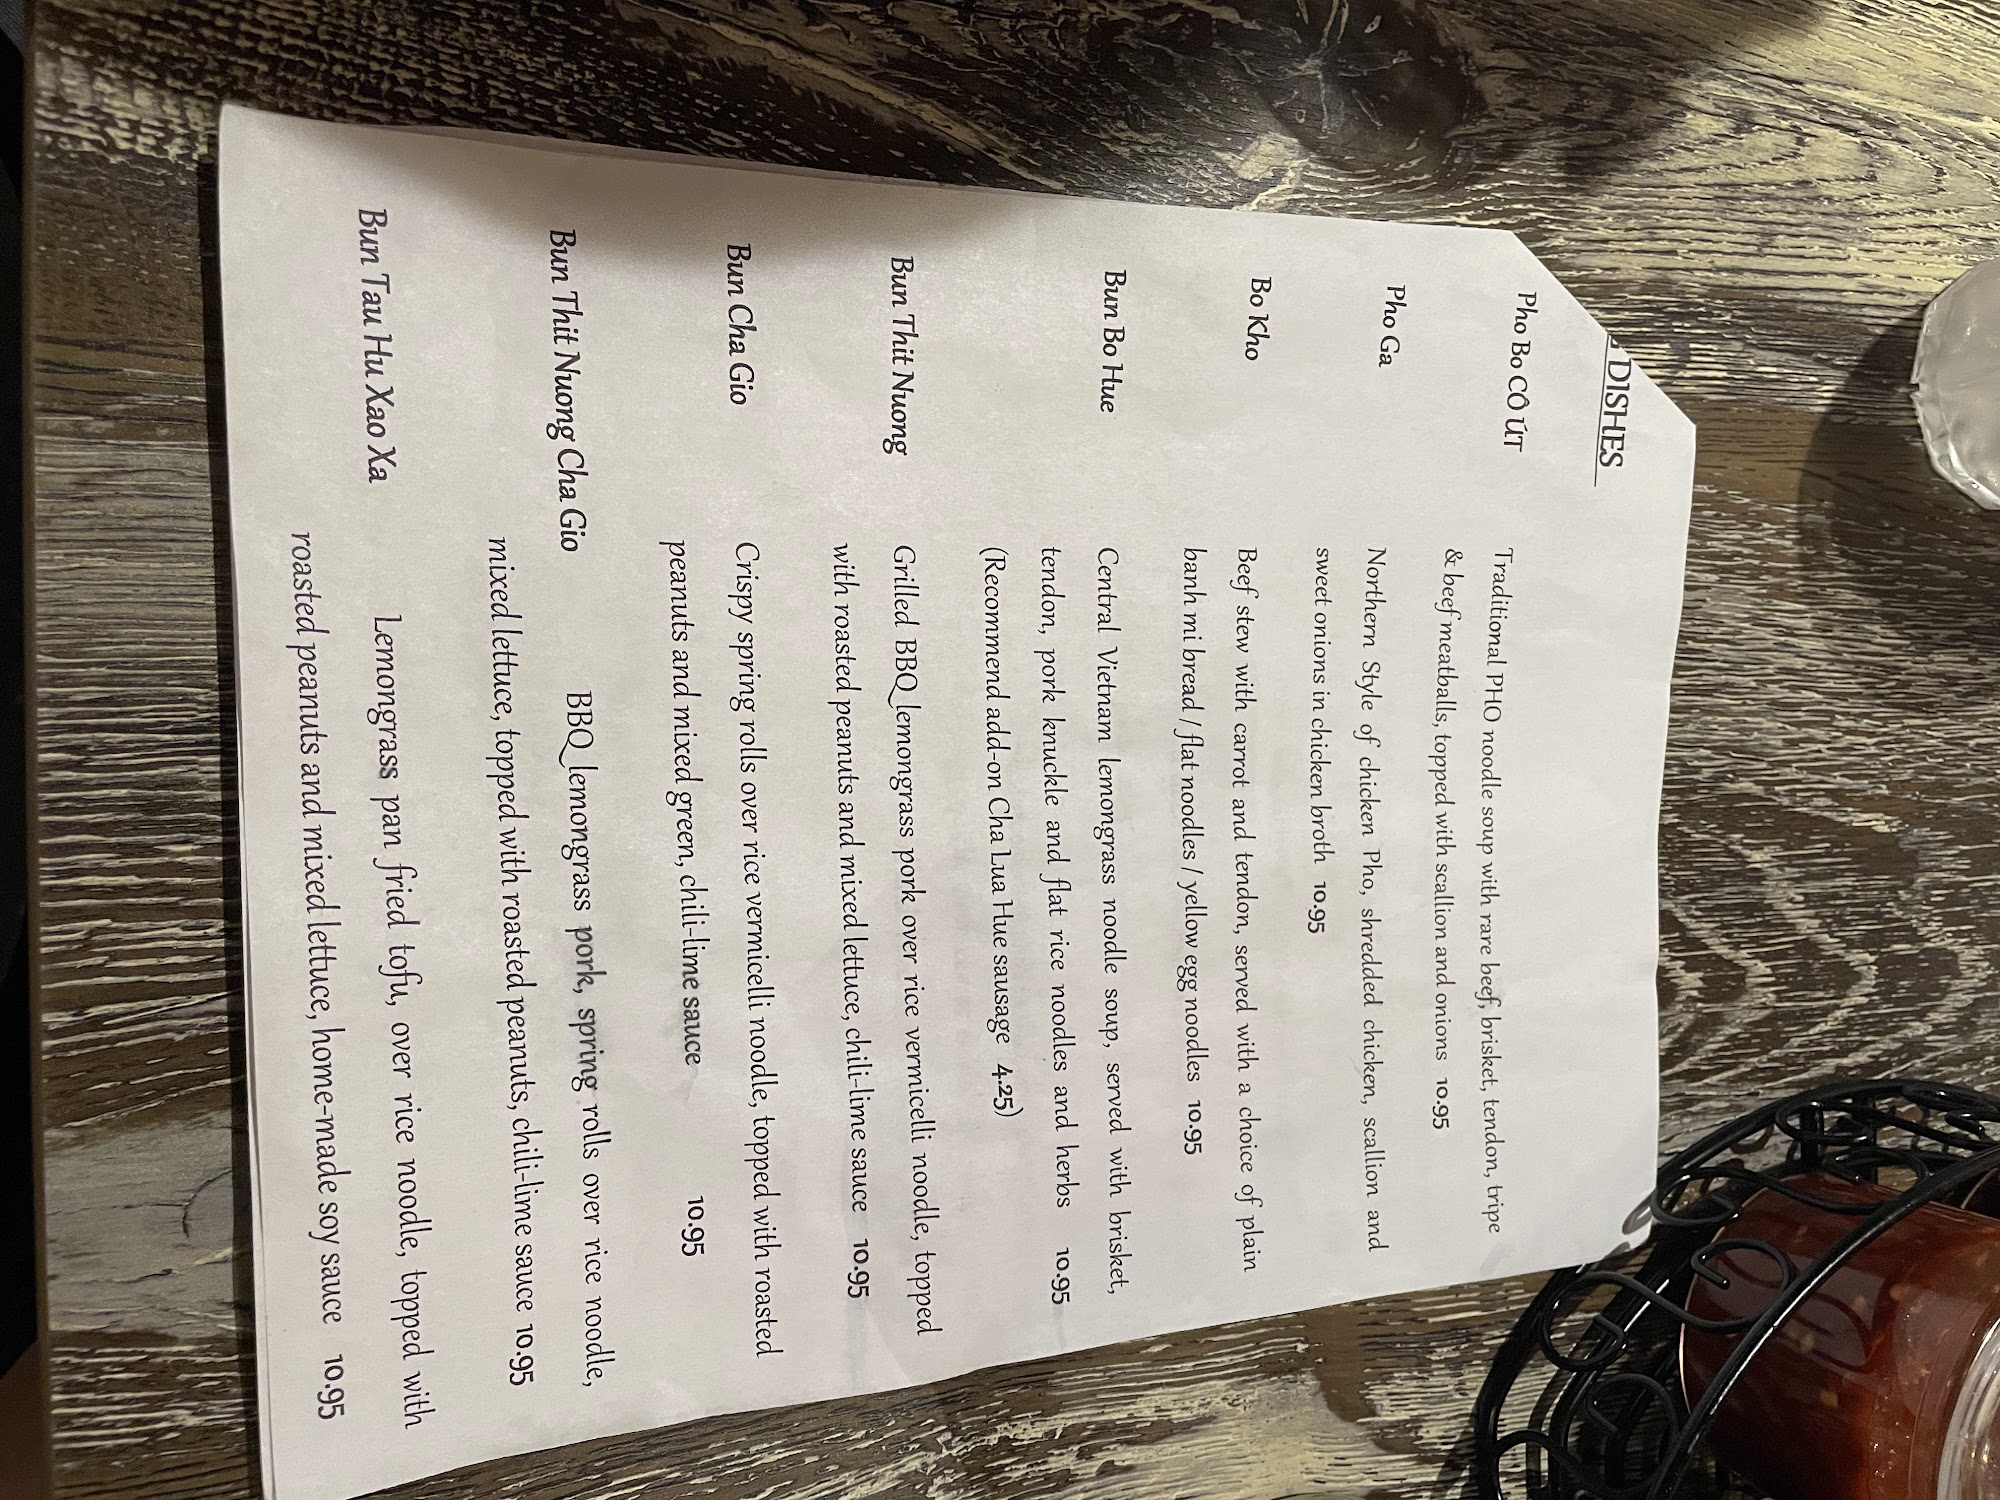 DISHES
Pho Bo CÔ ÚT
Traditional PHO noodle soup with rare beef, brisket, tendon, tripe
& beef meatballs, topped with scallion and onions 10.95
Pho Ga
Northern Style of chicken Pho, shredded chicken, scallion and
sweet onions in chicken broth 10.95
Bo Kho
Beef stew with carrot and tendon, served with a choice of plain
banh mi bread / flat noodles / yellow egg noodles 10.95
Bun Bo Hue
Central Vietnam lemongrass noodle soup, served with brisket,
tendon, pork knuckle and flat rice noodles and herbs 10.95
(Recommend add-on Cha Lua Hue sausage 4.25)
Bun Thit Nuong
Grilled BBQ lemongrass pork over rice vermicelli noodle, topped
with roasted peanuts and mixed lettuce, chili-lime sauce 10.95
Bun Cha Gio
Crispy spring rolls over rice vermicelli noodle, topped with roasted
peanuts and mixed green, chili-lime sauce 10.95
Bun Thit Nuong Cha Gio
BBQ lemongrass pork, spring rolls over rice noodle,
mixed lettuce, topped with roasted peanuts, chili-lime sauce 10.95
Bun Tau Hu Xao Xa
Lemongrass pan fried tofu, over rice noodle, topped with
roasted peanuts and mixed lettuce, home-made soy sauce 10.95